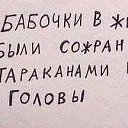 БАБОЧКИ В ЖИ
БЫЛИ СОЖРАН
ТАРАКАНАМИ
ГОЛОВЫ